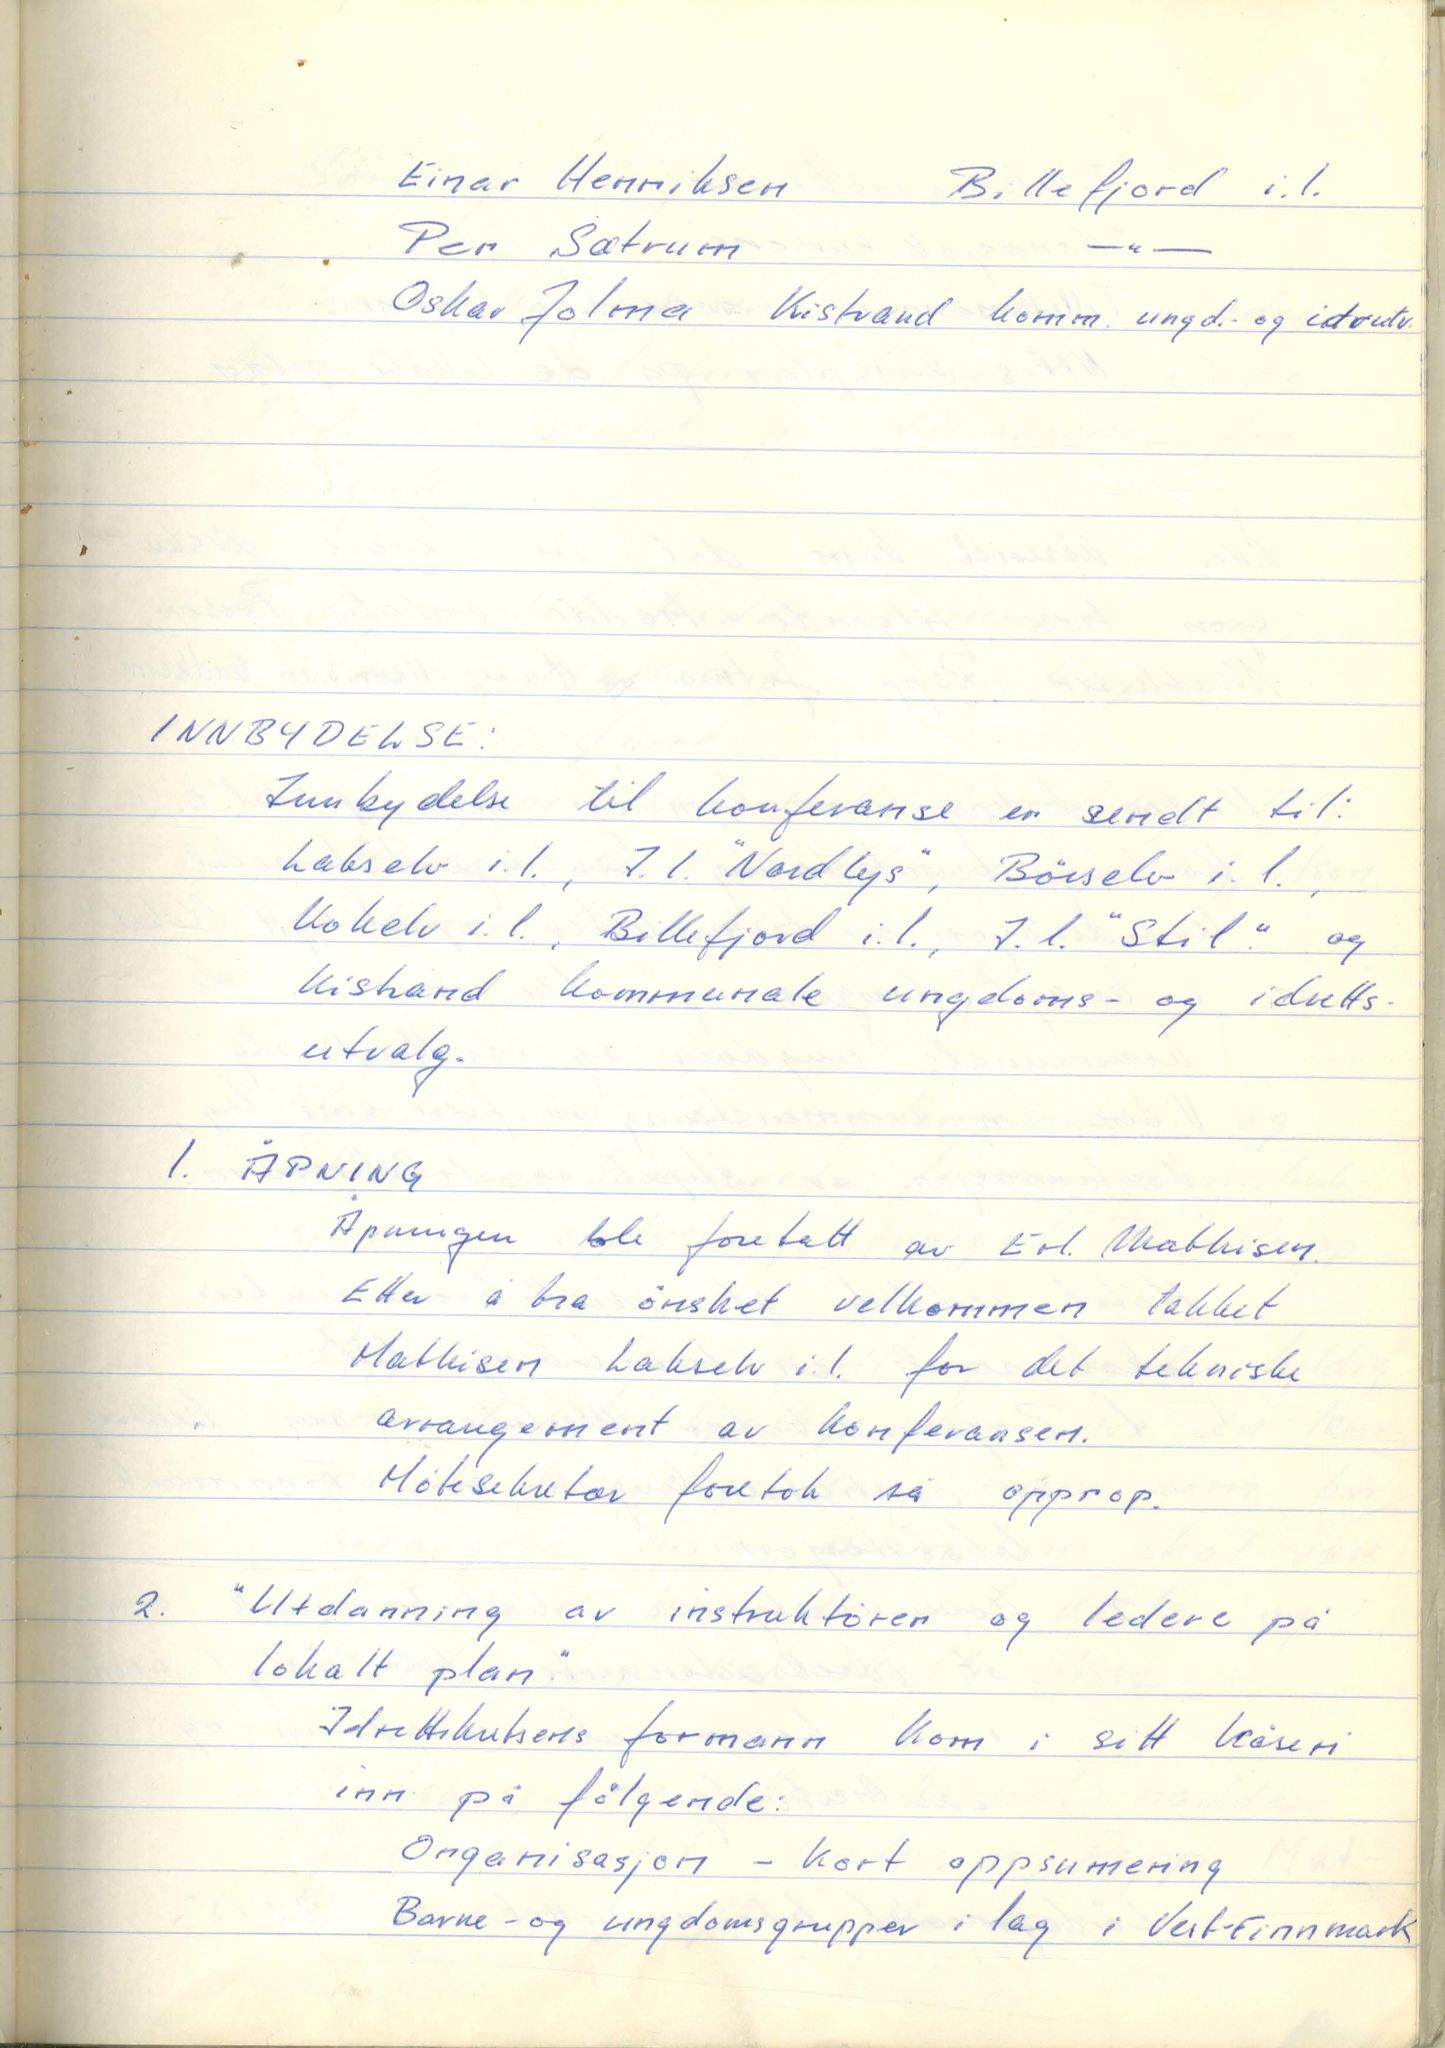 Einar Henriksen Billefjord i.l.
Per Sætrum —"—
Oskar Jolma Kistrand komm. ungd.- og idrutv.
INNBYDELSE:
Innbydelse til konferanse er sendt til:
Lakselv i.l., I.l. "Nordlys", Börselv i.l.,
Kokelv i.l., Billefjord i.l., I.l. "Stil" og
Kistrand kommunale ungdoms- og idretts-
utvalg.
1. ÅPNING
Åpningen ble foretatt av Erl. Mathisen.
Etter å ha önsket velkommen takket
Mathisen Lakselv i.l. for det tekniske
arrangement av konferansen.
Mötesekretær foretok så opprop.
2. "Utdanning av instruktörer og ledere på
lokalt plan."
Idrettskretsens formann kom i sitt kåseri
inn på fölgende:
Organisasjon - kort oppsumering
Barne- og ungdomsgrupper i lag i Vest-Finnmark